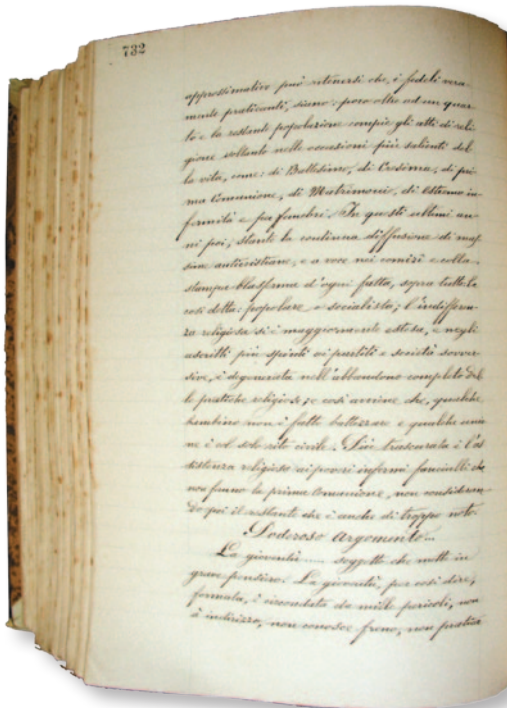 732
approssimativo può ritenersi che, i fedeli vera-
mente praticanti, siano; poco oltre ad un quar-
to e la restante popolazione compie gli atti di reli-
gione soltanto nelle occasioni più salienti del-
la vita, come: di Battesimo, di Cresima, di pri-
ma Comunione, di Matrimonio, di Estrema in-
fermità e fra funebri. In questi ultimi an-
ni poi, stante la continua diffusione di mas-
sime anticristiane, e a voce nei comizi e colla
stampa blasfema d'ogni fatta, sopra tutto la
così detta: popolare o socialista; l'indifferen-
za religiosa si è maggiormente estesa, e negli
ascritti più spinti ai partiti e società sovver-
sive, è degenerata nell'abbandono completo del-
le pratiche religiose; e così avviene che, qualche
bambino non è fatto battezzare e qualche unio-
ne è col solo rito civile. Più trascurata è l'as-
sistenza religiosa ai poveri infermi fanciulli che
non fanno la prima Comunione, non consideran-
do poi il restante che è anche di troppo noto.
Poderoso argomento...
La gioventù ..... soggetto che mette in
grave pensiero. La gioventù, per così dire,
formata, è circondata da mille pericoli, non
à indirizzo, non conosce freno, non pratica